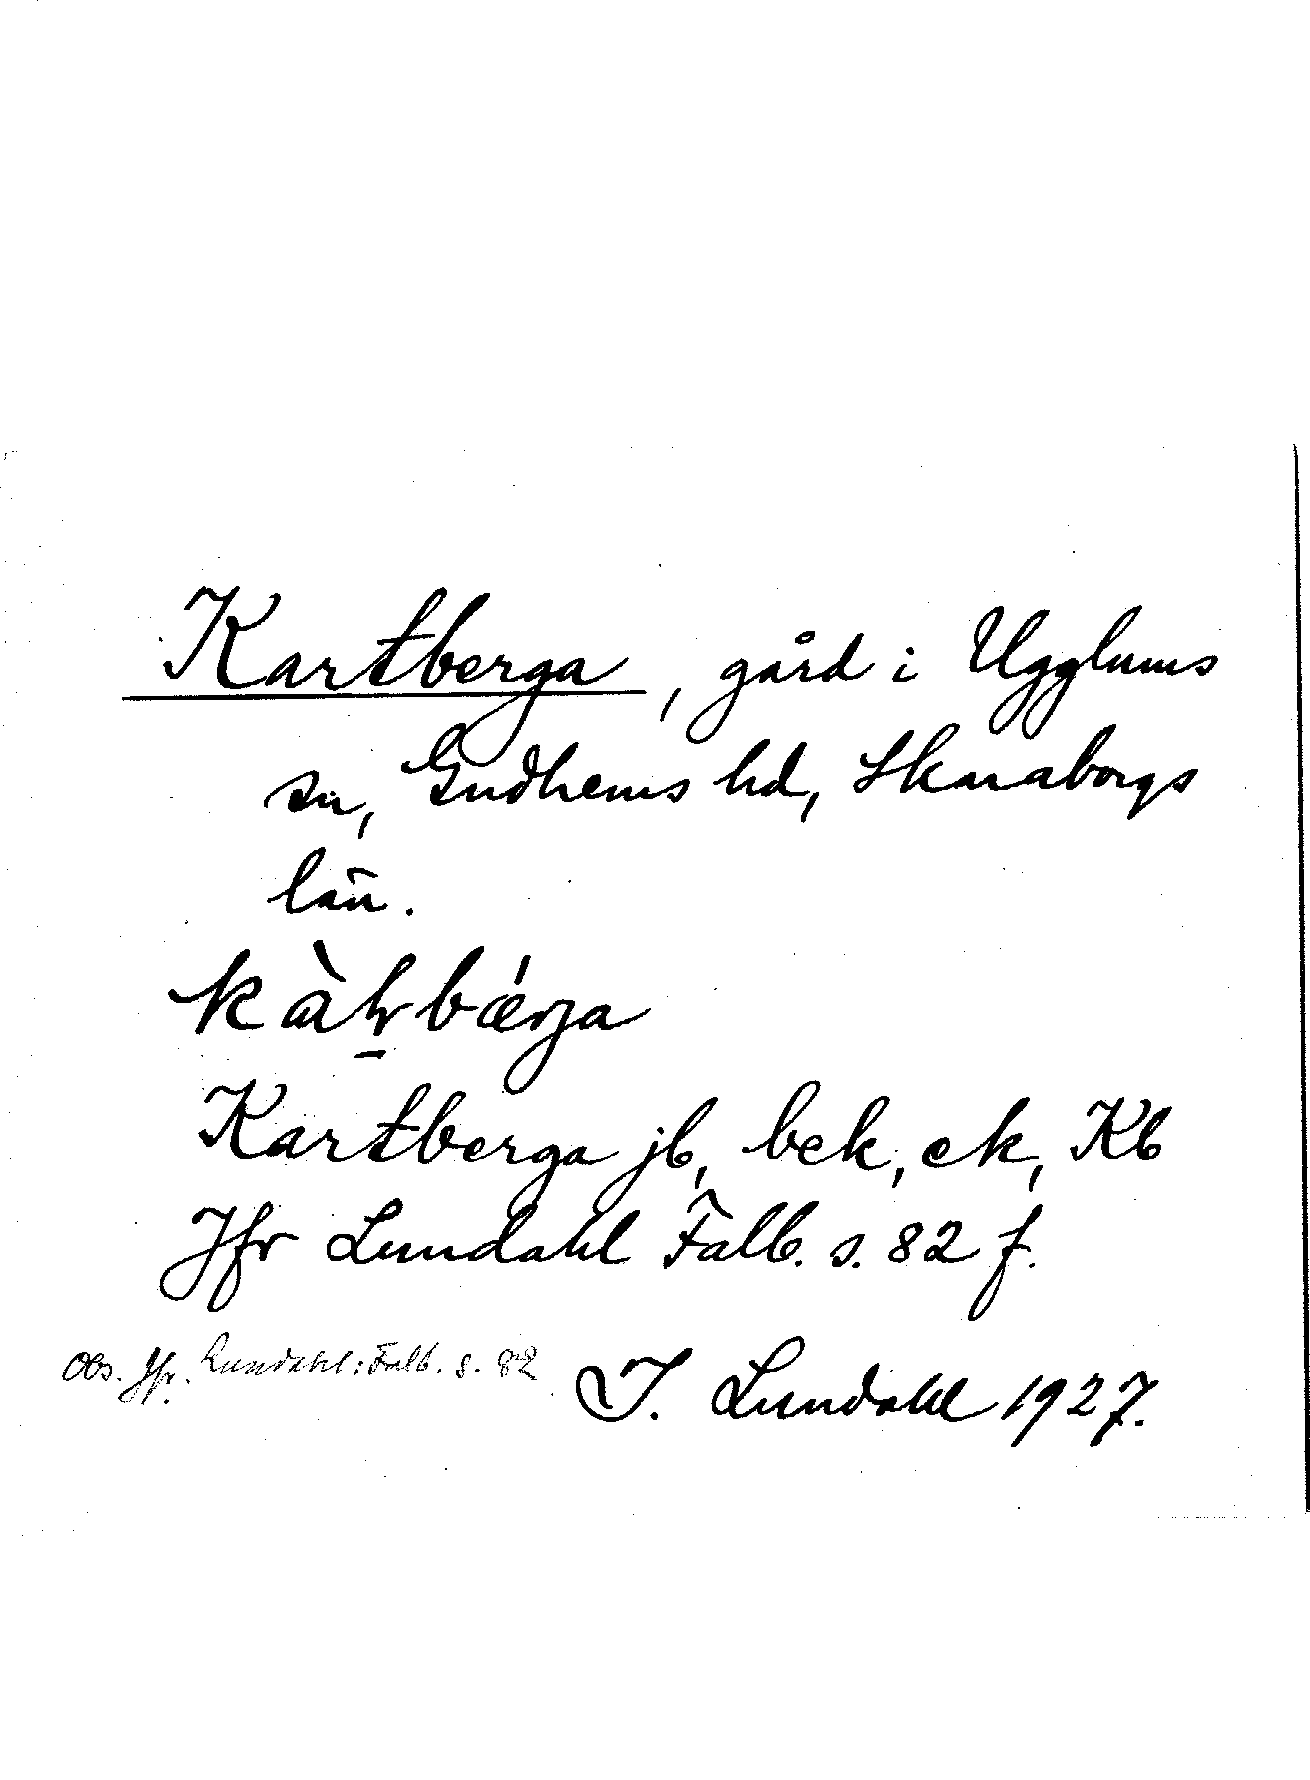 Kartberga, gård i Ugglums
sn, Gudhems hd, Skaraborgs
län.
Kartberga jb, bek, ek, Kb
Jfr Lundahl Falb. s. 82 f.
Obs. Jfr. Lundahl: Falb. s. 82
I. Lundahl 1927.